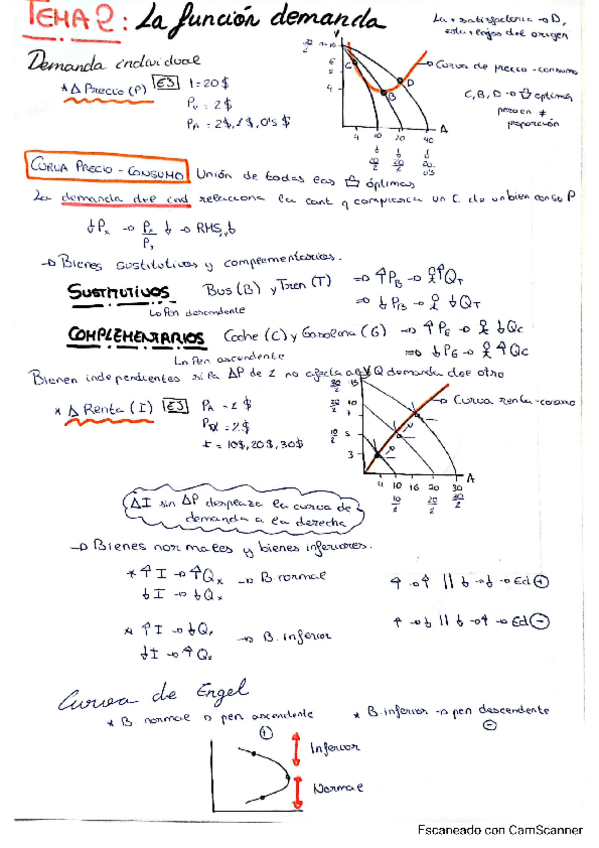 TEMA 2: La función demanda
La + satisfactoria → D,
esta + lejos del origen
Demanda individual
* Δ Precio (P) EJ I = 20$
Pv = 2$
PA = 2$, 1$, 0'5$
Curva de precio-consumo
C, B, D → óptimas
pero en ≠
proporción
4 10 20 40 A
CURVA PRECIO-CONSUMO Unión de todas las óptimas
La demanda del ind relaciona la cant q compraría un C de un bien con so P
↓Px → Px/Py ↓ → RMS ↓
→ Bienes sustitutivos y complementarios.
SUSTITUTIVOS Bus (B) y Tren (T) ⇒ ↑PB → ↑QT
⇒ ↓PB → ↓QT
Lo Pen descendente
COMPLEMENTARIOS Coche (C) y Gasolina (G) ⇒ ↑PG → ↓QC
⇒ ↓PG → ↑QC
Lo Pen ascendente
Bienen independientes si la ΔP de 1 no afecta a la Q demanda del otro
* Δ Renta (I) EJ PA = 1$
= 2$
I = 10$, 20$, 30$
Curva renta-consumo
15
10
7
5
3
4 10 16 20 30 A
10/2 20/2 30/2
ΔI sin ΔP desplaza la curva de
demanda a la derecha
→ Bienes normales y bienes inferiores.
* ↑I → ↑Qx → B normal
↓I → ↓Qx
↑ → ↑ || ↓ → ↓ → Ed +
* ↑I → ↓Qx → B. inferior
↓I → ↑Qx
↑ → ↓ || ↓ → ↑ → Ed -
Curva de Engel
* B. normal → pen ascendente +
* B. inferior → pen descendente -
Inferior
Normal
Escaneado con CamScanner